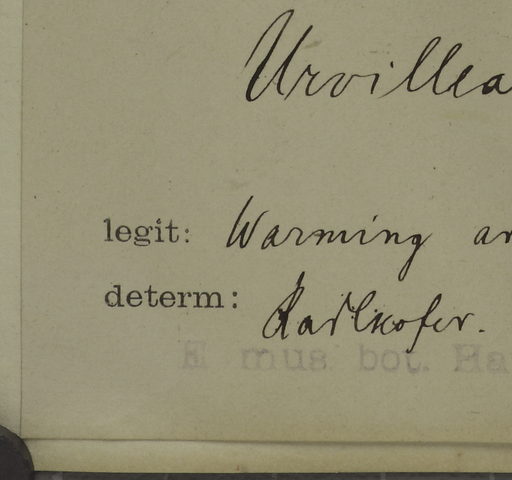 Urvillea
legit: Warming an
determ: Radlkofer.
E mus bot. Ha